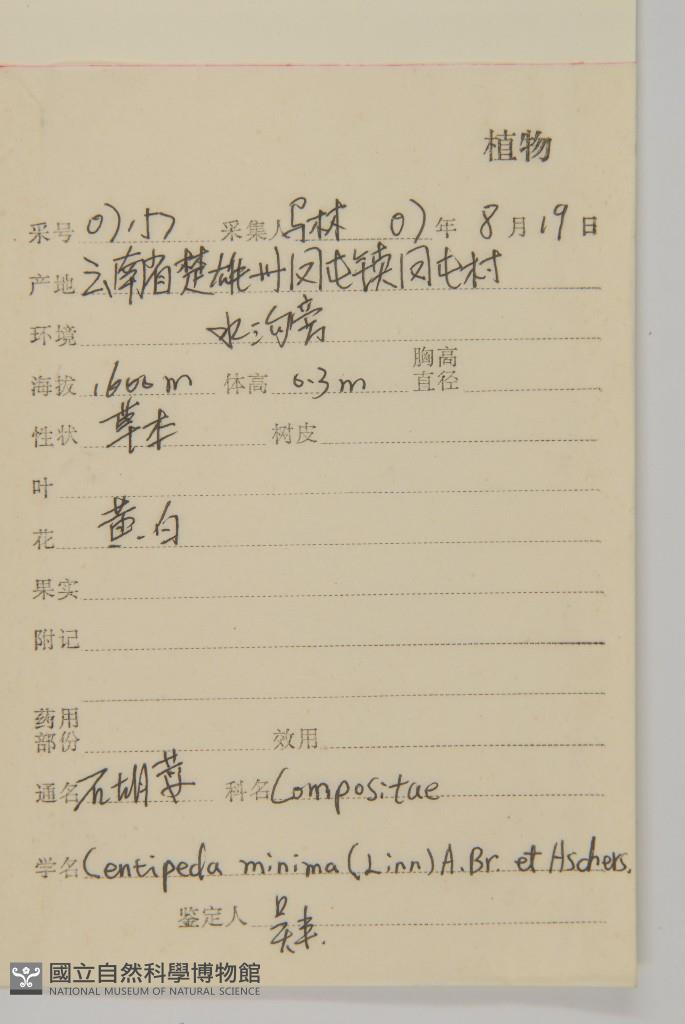 植物
采号 07.157 采集人 马林 07年 8月 19日
产地 云南省楚雄州冈屯镇冈屯村
环境 水沟旁
海拔 1600m 体高 0.3m 胸高直径
性状 草本 树皮
叶
花 黄.白
果实
附记
药用部份 效用
通名 石胡荽 科名 Compositae
学名 Centipeda minima (Linn) A.Br. et Aschers.
鉴定人
國立自然科學博物館
NATIONAL MUSEUM OF NATURAL SCIENCE